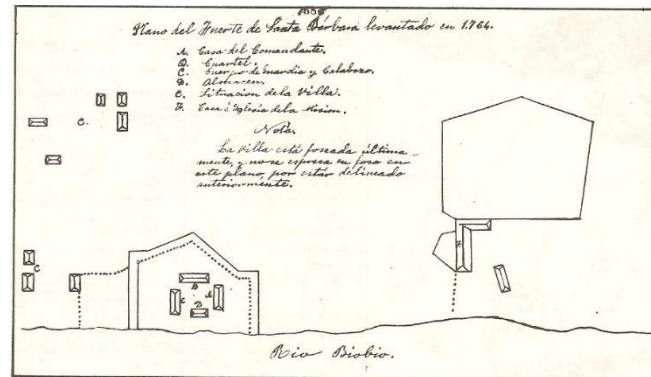 Plano del Fuerte de Santa Bárbara levantado en 1.764.
A. Casa del Comandante.
B. Cuartel.
C. Cuerpo de Guardia y Calabozo.
D. Almacen.
E. Situacion de la Villa.
F. Casa é Iglesia de la Mision.
Nota
La Villa está foseada última-
mente, y no se espresa su foso en
este plano, por estar delineado
anteriormente.
C.
C
B
C
A
D
F
Rio Biobio.